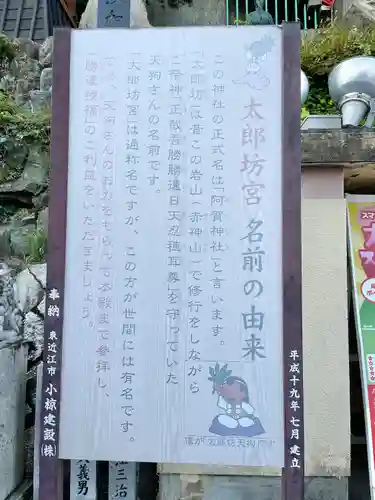 太郎坊宮 名前の由来
この神社の正式名は「阿賀神社」と言います。
「太郎坊」は昔この岩山(赤神山)で修行をしながら
ご祭神「正哉吾勝勝速日天忍穂耳尊」を守っていた
天狗さんの名前です。
「太郎坊宮」は通称名ですが、この方が世間には有名です。
天狗さんの力をもらって本殿まで参拝し、
「勝運授福」のご利益をいただきましょう。
僕が太郎坊天狗
平成十九年七月 建立
奉納 東近江市 小椋建設(株)
義男
三治